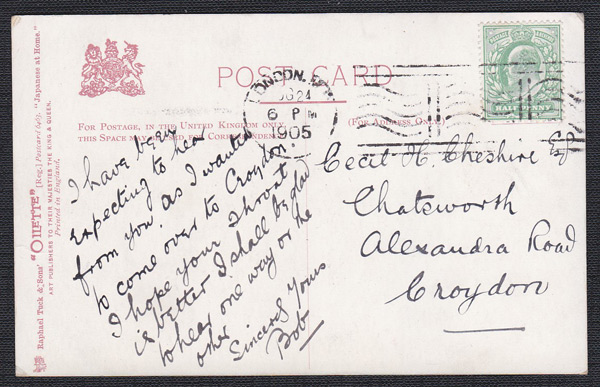 POST CARD
FOR POSTAGE, IN THE UNITED KINGDOM ONLY,
THIS SPACE MAY CORRESPONDENCE
(FOR ADDRESS ONLY.)
LONDON.
24
6 PM
1905
POSTAGE REVENUE
HALF PENNY
I have been
expecting to hear
from you, as I wanted
to come over to Croydon.
I hope your throat
is better I shall be glad
to hear one way or the
other
Sincerely Yours
Bob
Cecil H. Cheshire Esq
Chatsworth
Alexandra Road
Croydon
Raphael Tuck & Sons' "OILETTE" [Reg.] Postcard "Japanese at Home."
ART PUBLISHERS TO THEIR MAJESTIES THE KING & QUEEN.
Printed in England.